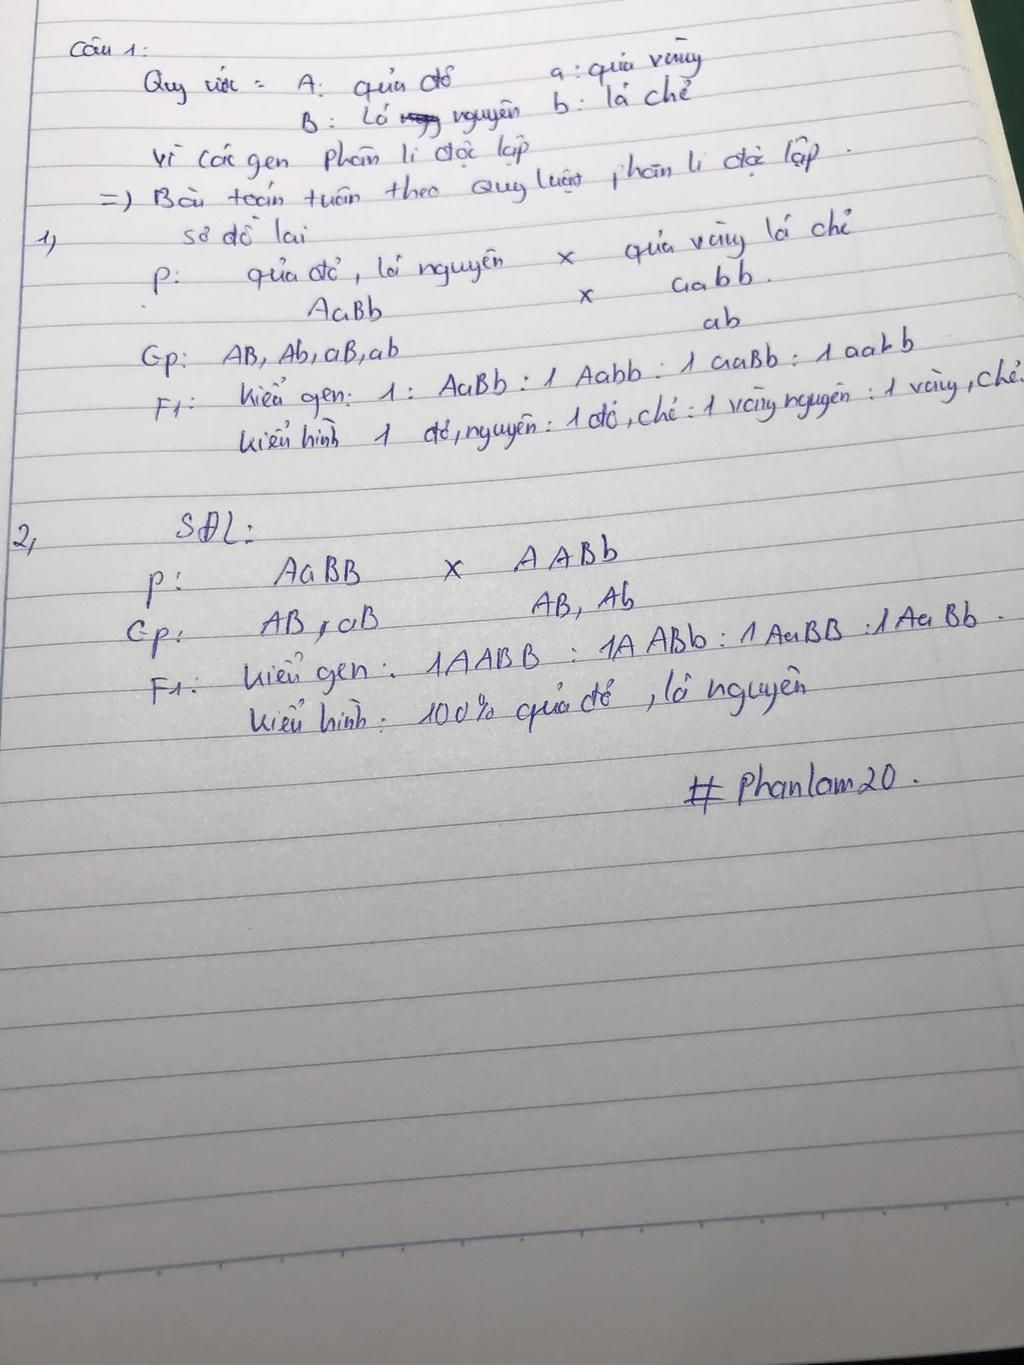 Câu 1:
Quy ước = A: quả đỏ a: quả vàng
B: Lá nguyên b: lá chẻ
vì các gen phân li độc lập
=) Bài toán tuân theo Quy luật phân li độc lập.
1, sơ đồ lai
P: quả đỏ, lá nguyên x quả vàng lá chẻ
AaBb x aabb.
Gp: AB, Ab, aB, ab ab
F1: kiểu gen: 1: AaBb : 1 Aabb : 1 aaBb : 1 aabb
kiểu hình 1 đỏ, nguyên : 1 đỏ, chẻ : 1 vàng nguyên : 1 vàng, chẻ.
2, SĐL:
P: AaBB x AABb
Gp: AB, aB AB, Ab
F1: kiểu gen: 1AABB : 1AABb : 1AaBB : 1AaBb.
kiểu hình: 100% quả đỏ, lá nguyên
# phanlam20.